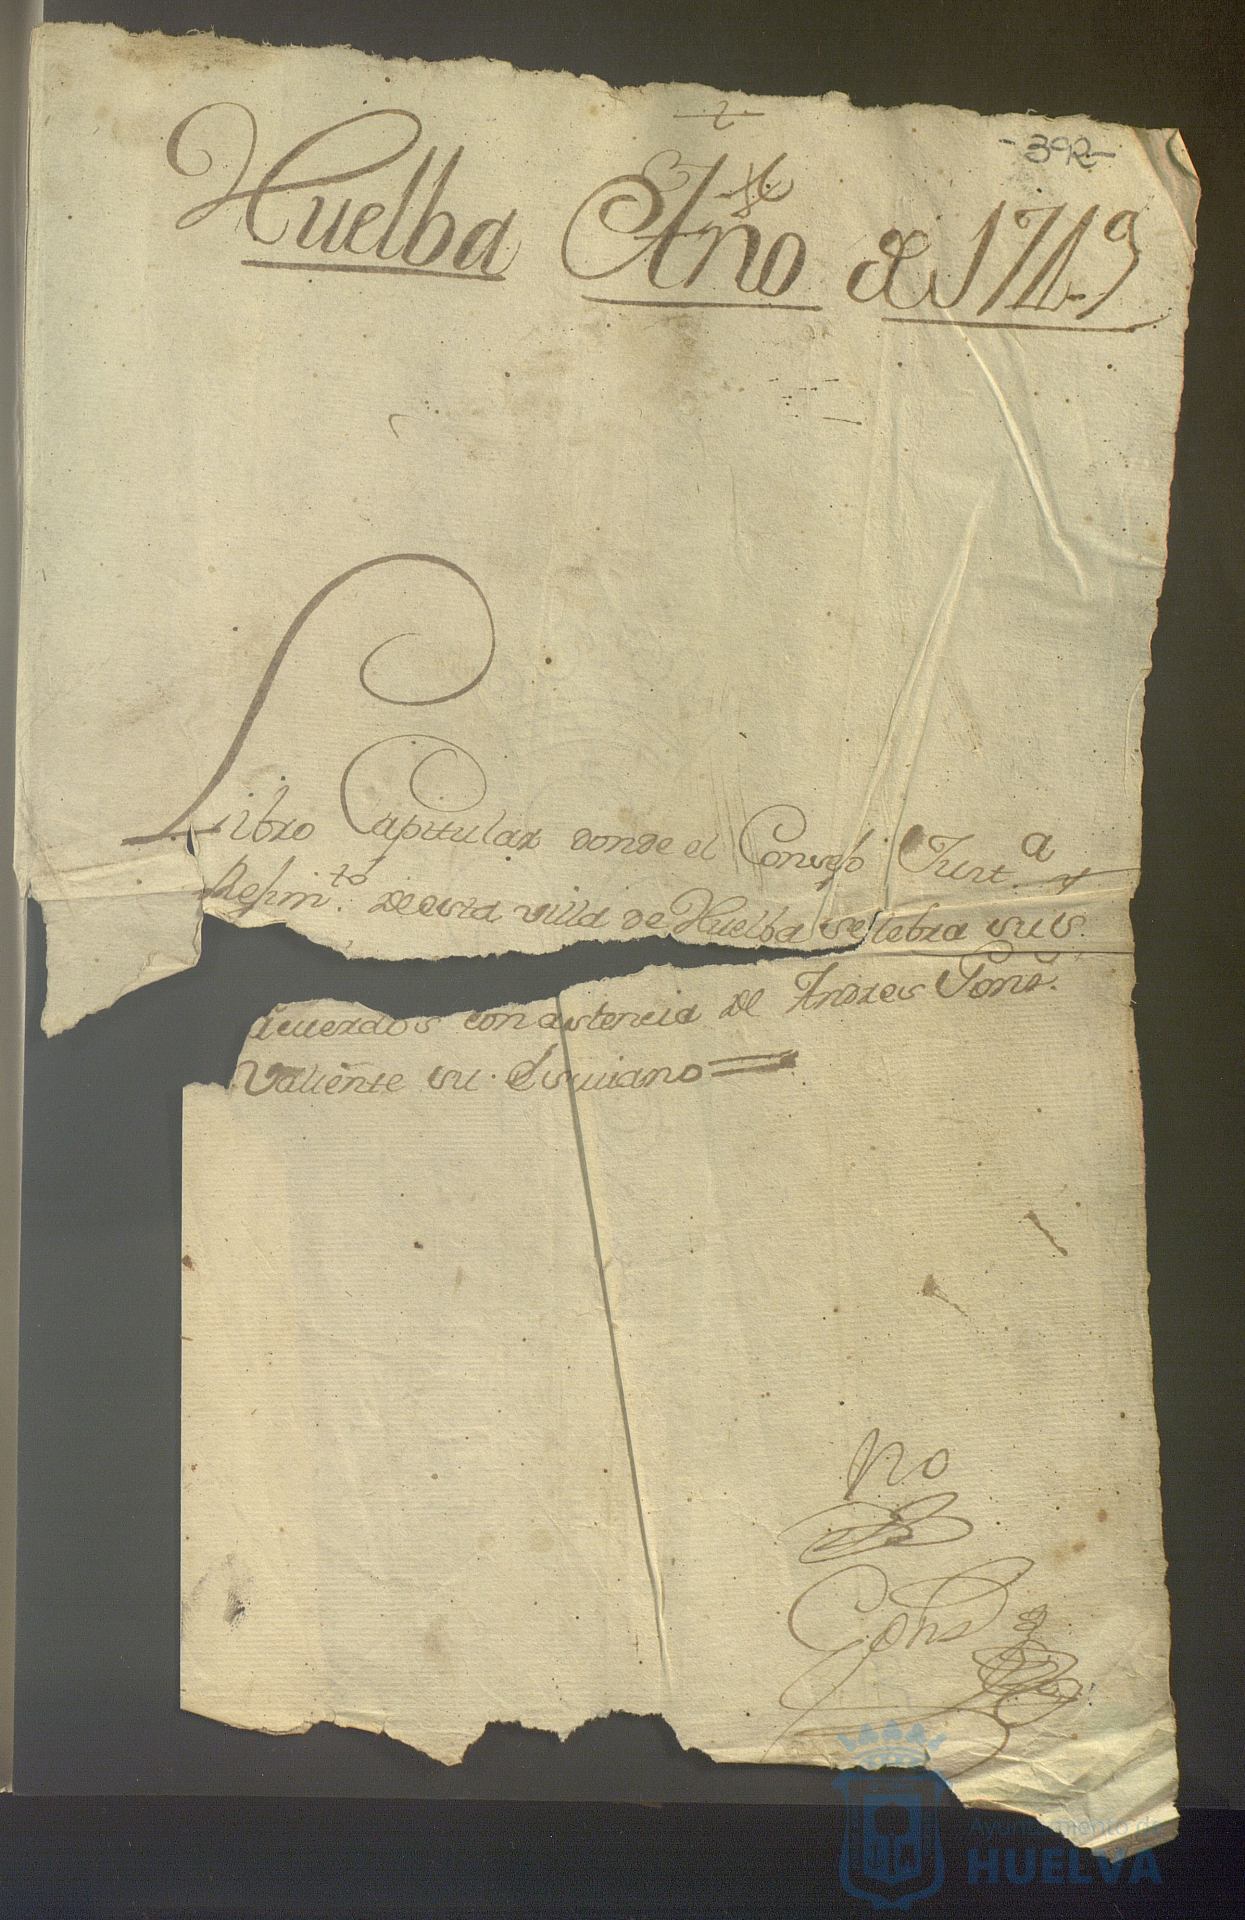 -392-
Huelba Año de 1749
Libro Capitular donde el Consejo Just.a y
Regim.to de esta villa de Huelba selebra sus
acuerdos con asistencia de Andres Gons.
Valiente su Escriuano =
no
Gons
Ayuntamiento de
HUELVA